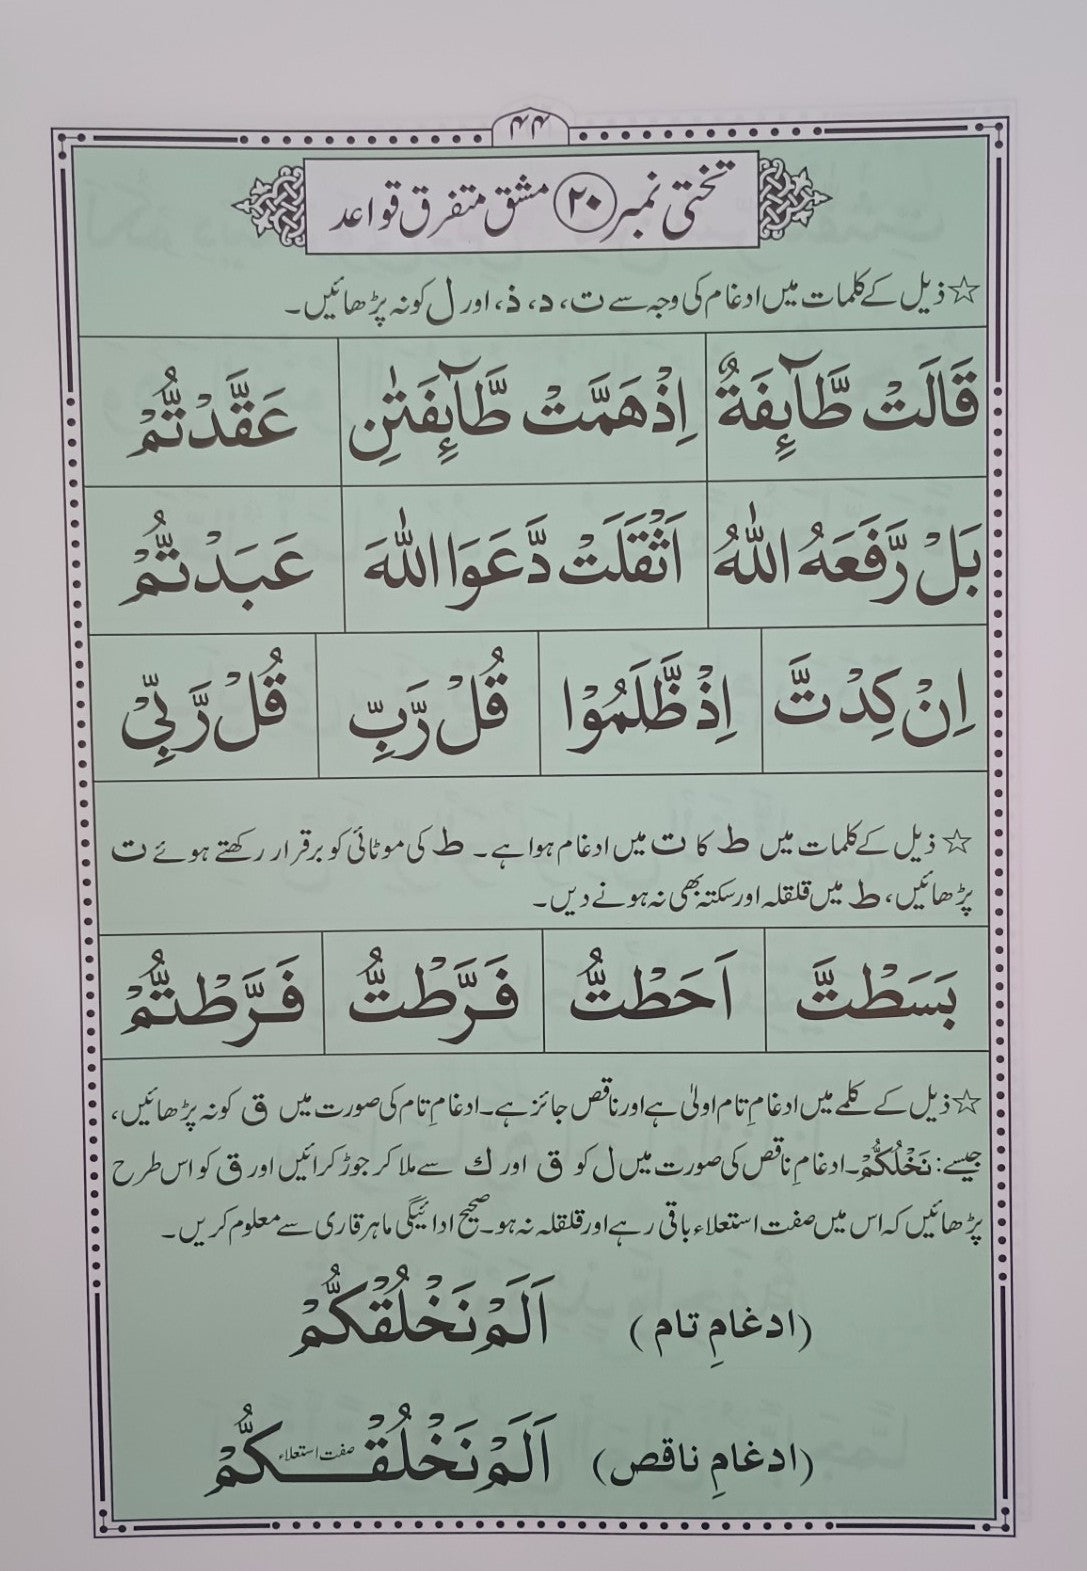 ۴۴
تختی نمبر ۲۰ مشق متفرق قواعد
☆ ذیل کے کلمات میں ادغام کی وجہ سے ت، د، ذ، اور ل کو نہ پڑھائیں۔
قَالَتْ طَّآئِفَةٌ اِذْهَمَّتْ طَّآئِفَتٰنِ عَقَّدْتُّمْ
بَلْ رَّفَعَهُ اللّٰهُ اَثْقَلَتْ دَّعَوَا اللّٰهَ عَبَدْتُّمْ
اِنْ كِدْتَّ اِذْ ظَّلَمُوْا قُلْ رَّبِّ قُلْ رَّبِّيْ
☆ ذیل کے کلمات میں ط کا ت میں ادغام ہوا ہے۔ ط کی موٹائی کو برقرار رکھتے ہوئے ت
پڑھائیں، ط میں قلقلہ اور سکتہ بھی نہ ہونے دیں۔
بَسَطْتَّ اَحَطْتُّ فَرَّطْتُّ فَرَّطْتُّمْ
☆ ذیل کے کلمے میں ادغامِ تام اولیٰ ہے اور ناقص جائز ہے۔ ادغامِ تام کی صورت میں ق کو نہ پڑھائیں،
جیسے: نَخْلُكُّمْ۔ ادغامِ ناقص کی صورت میں ل کو ق اور ك سے ملا کر جوڑ کرائیں اور ق کو اس طرح
پڑھائیں کہ اس میں صفت استعلاء باقی رہے اور قلقلہ نہ ہو۔ صحیح ادائیگی ماہر قاری سے معلوم کریں۔
(ادغامِ تام) اَلَمْ نَخْلُقْكُّمْ
(ادغامِ ناقص) اَلَمْ نَخْلُقْ صفت استعلاء كُّمْ